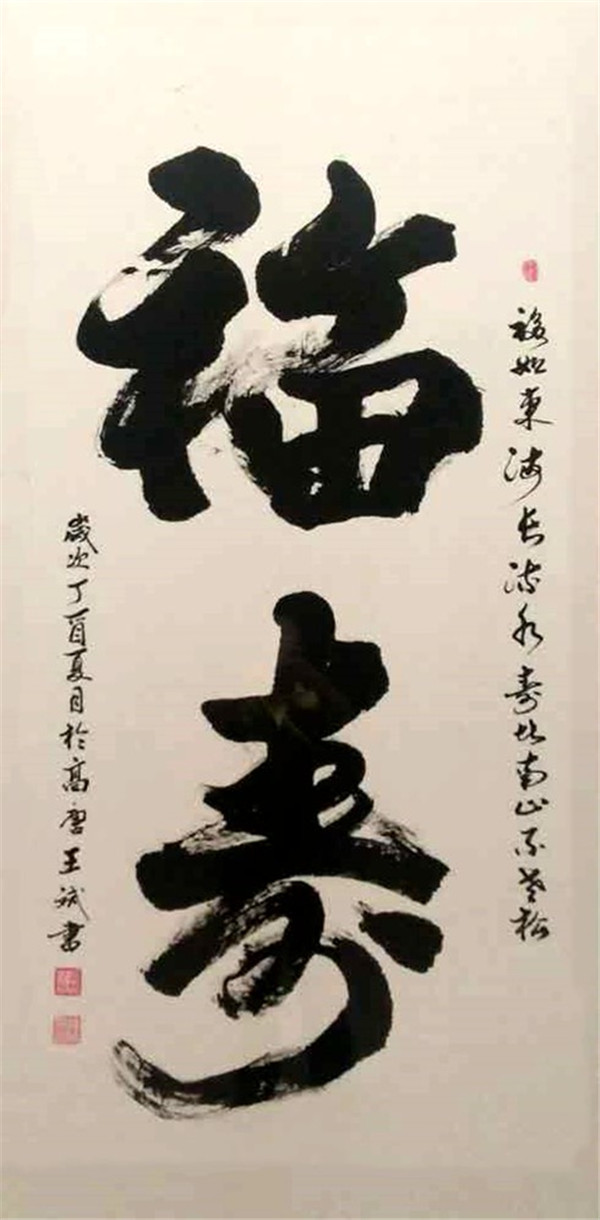 福如東海長流水壽比南山不老松
福壽
歲次丁酉夏月於高唐王斌書